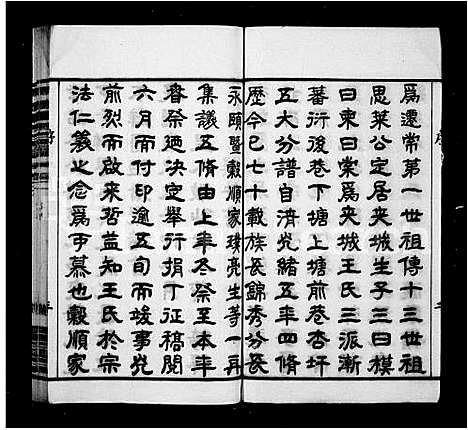 為遷常第一世祖傳十三世祖
思萊公定居夾城生子三曰模
曰東曰棠為夾城王氏三派漸
蕃衍後巷下塘上塘前巷杏圩
五大分譜自清光緒五年四脩
歷今已七十載族長錦秀分長
永頤暨穀順家瑋亮生等一再
集議五脩由上年冬祭至本年
春祭廼決定舉行捐丁征稿閱
六月而付印逾五旬而竣事光
前烈而啟来哲益知王氏於宗
法仁義之念為可慕也穀順家
序